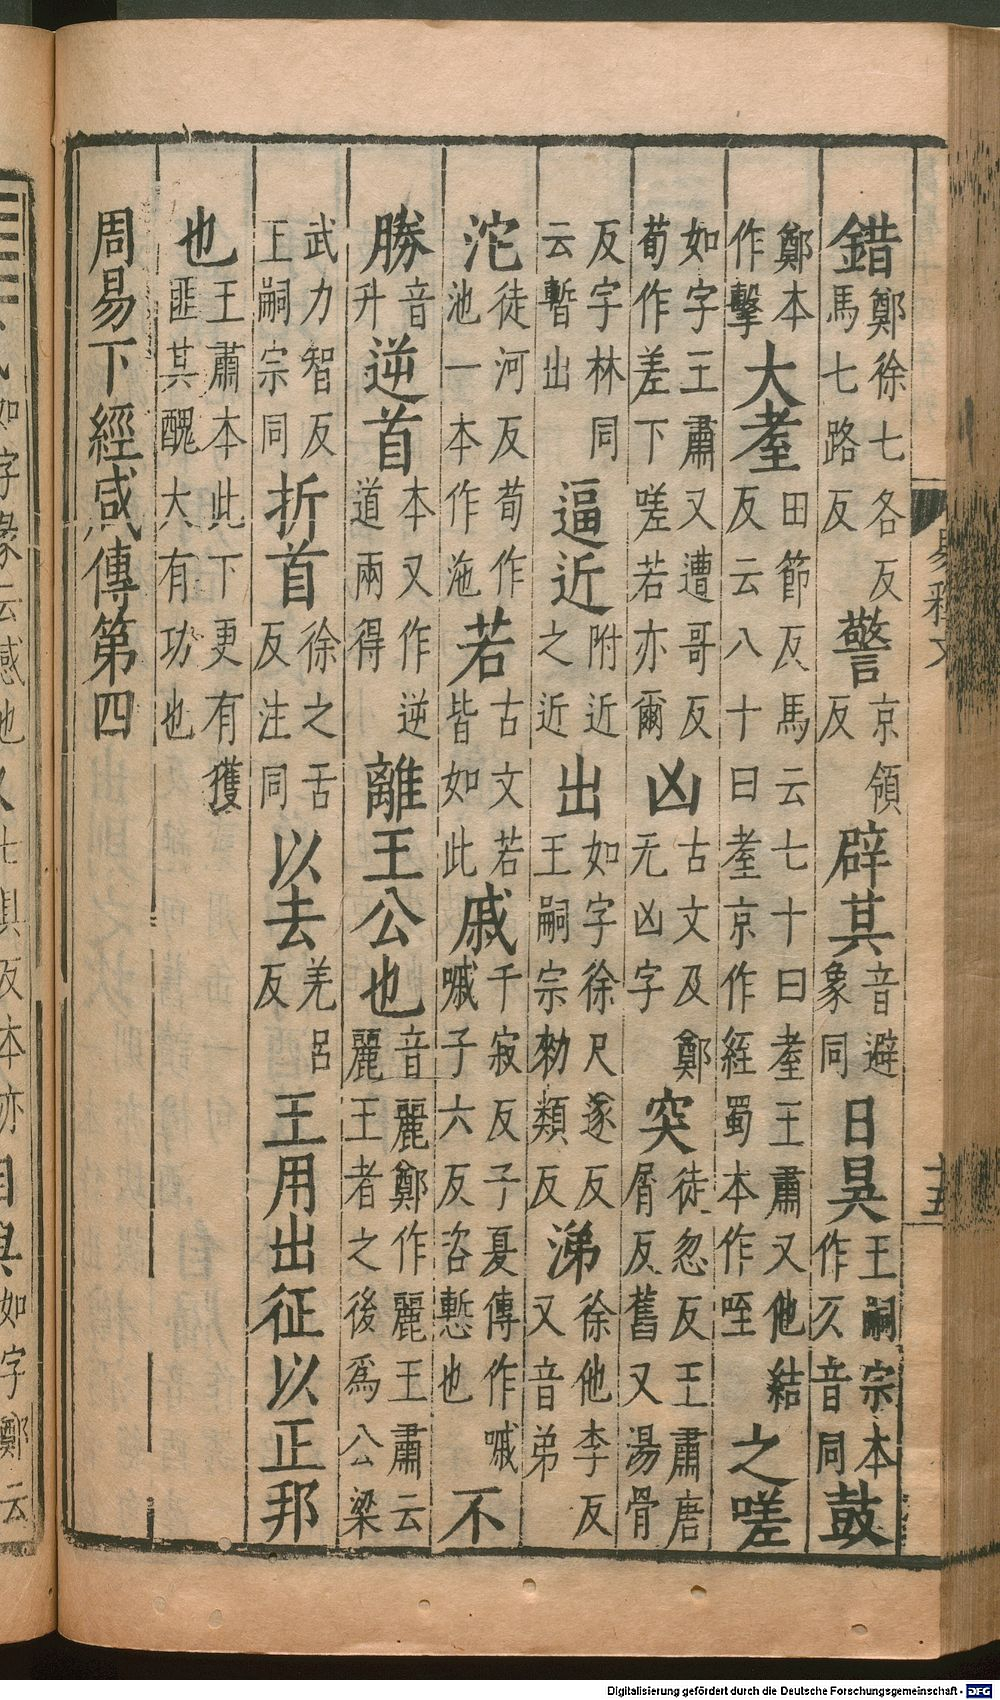 易釋文 十五
錯鄭徐七各反馬七路反警京領反辟其音避象同日昃王嗣宗本作仄音同鼓
鄭本作擊大耋田節反馬云七十曰耋王肅又他結反云八十曰耋京作絰蜀本作咥之嗟
如字王肅又遭哥反荀作差下嗟若亦爾凶古文及鄭无凶字突徒忽反王肅唐屑反舊又湯骨
反字林同云暫出逼近附近之近出如字徐尺遂反王嗣宗勑類反涕徐他李反又音弟
沱徒河反荀作池一本作沲若古文若皆如此戚千寂反子夏傳作嘁嘁子六反咨慙也不
勝音升逆首本又作逆道兩得離王公也音麗鄭作麗王肅云麗王者之後爲公梁
武力智反王嗣宗同折首徐之舌反注同以去羌呂反王用出征以正邦
也王肅本此下更有獲匪其醜大有功也
周易下經咸傳第四
如字彖云感也 七俱反本亦 如字鄭云
Digitalisierung gefördert durch die Deutsche Forschungsgemeinschaft - DFG